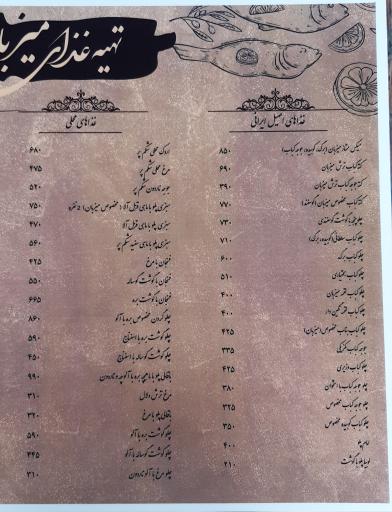 تهیه غذای میزبان
غذاهای اصیل ایرانی
میکس ممتاز میزبان (برگ، کوبیده، جوجه کباب) ۸۵۰
کته کباب ترش میزبان ۶۹۰
کته جوجه کباب ترش میزبان ۳۹۰
کته کباب مخصوص میزبان (گوسفند) ۷۷۰
چلو با گوشت گوسفندی ۷۳۰
چلو کباب سلطانی (کوبیده، برگ) ۷۱۰
چلو کباب برگ ۶۰۰
چلو کباب بختیاری ۵۱۰
چلو کباب لقمه میزبان ۴۰۰
چلو کباب لقمه نگین دار ۴۰۰
چلو کباب مخصوص (میزبان) ۴۲۵
جوجه کباب ۳۳۵
چلو کباب وزیری ۴۲۵
چلو جوجه کباب با استخوان ۳۸۰
چلو جوجه کباب مخصوص ۳۲۵
چلو کباب کوبیده مخصوص ۳۵۰
امام پلو ۴۰۰
لوبیا پلو با گوشت ۲۱۰
غذاهای محلی
اردک محلی شکم پر ۶۸۰
مرغ محلی شکم پر ۴۷۵
جوجه ناردون شکم پر ۵۲۰
سبزی پلو با ماهی قزل آلا (مخصوص میزبان) ۲ نفره ۷۵۰
سبزی پلو با ماهی قزل آلا ۴۷۰
سبزی پلو با ماهی سفید شکم پر ۵۶۰
فسنجان با مرغ ۴۲۵
فسنجان با گوشت گوساله ۵۵۰
فسنجان با گوشت بره ۶۶۵
چلو گردن مخصوص بره با آلو ۸۶۰
چلو گوشت بره با اسفناج ۵۹۰
چلو گوشت گوساله با اسفناج ۴۵۰
باقالی پلو با ماهیچه بره با آلوچه و ناردون ۹۹۰
مرغ ترش ۳۱۰
باقالی پلو با مرغ ۳۲۰
چلو گوشت بره با آلو ۵۹۰
چلو گوشت گوساله با آلو ۴۴۵
چلو مرغ با آلو ناردون ۳۱۰